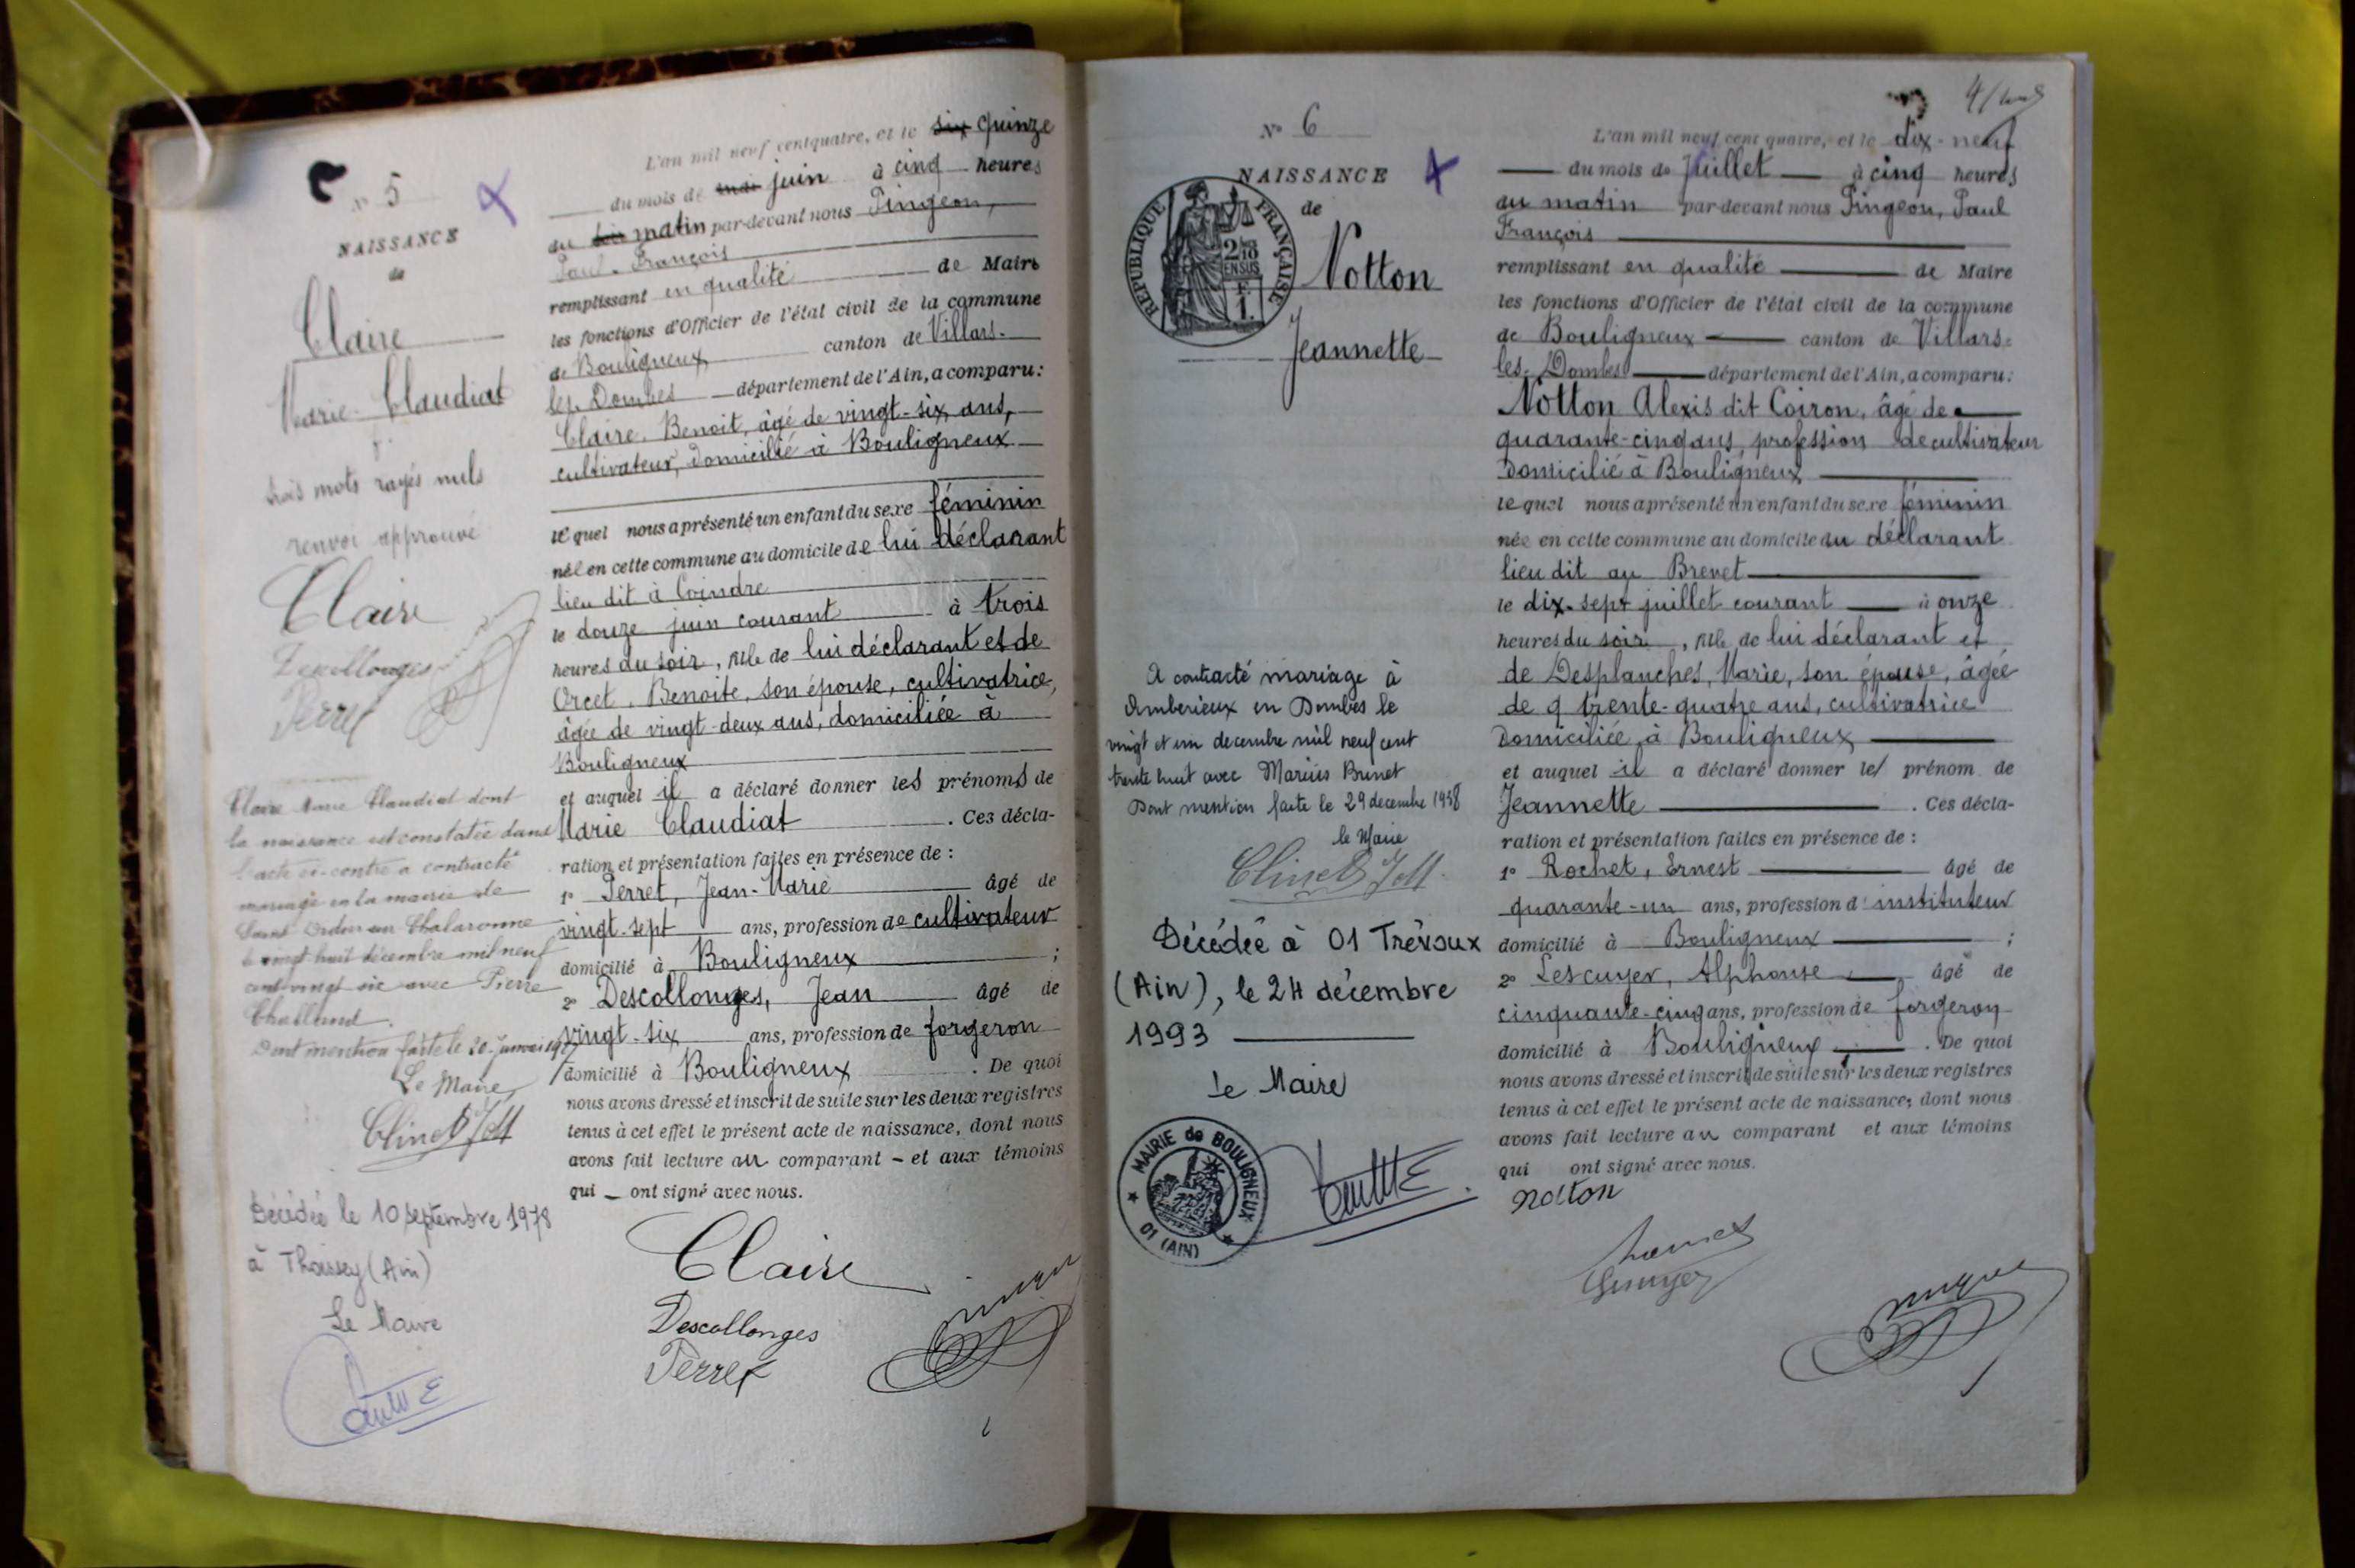 N° 5
NAISSANCE
de
Claire
Marie Claudiat
trois mots rayés nuls
renvoi approuvé
Claire
Descollonges
Perret
Claire Marie Claudiat dont
la naissance est constatée dans
l'acte ci-contre a contracté
mariage en la mairie de
Chalaronne
le vingt huit décembre mil neuf
cent vingt six avec Pierre
Dont mention faite le 20 janvier 1927
Le Maire,
Décédée le 10 septembre 1978
à Thoissey (Ain)
Le Maire
L'an mil neuf cent quatre, et le six quinze
du mois de mai juin à cinq heures
du soir matin par-devant nous Pingeon,
Paul-François
remplissant en qualité de Maire
les fonctions d'Officier de l'état civil de la commune
de Bouligneux canton de Villars-
les-Dombes département de l'Ain, a comparu:
Claire, Benoit, âgé de vingt-six ans,
cultivateur, domicilié à Bouligneux
lequel nous a présenté un enfant du sexe féminin
née en cette commune au domicile de lui déclarant
lieu dit à Coindre
le douze juin courant à trois
heures du soir, fille de lui déclarant et de
Orcet, Benoite, son épouse, cultivatrice,
âgée de vingt-deux ans, domiciliée à
Bouligneux
et auquel il a déclaré donner les prénoms de
Marie Claudiat. Ces décla-
ration et présentation faites en présence de :
1° Perret, Jean-Marie âgé de
vingt-sept ans, profession de cultivateur
domicilié à Bouligneux ;
2° Descollonges, Jean âgé de
vingt-six ans, profession de forgeron
domicilié à Bouligneux. De quoi
nous avons dressé et inscrit de suite sur les deux registres
tenus à cet effet le présent acte de naissance, dont nous
avons fait lecture au comparant - et aux témoins
qui - ont signé avec nous.
Claire
Descollonges
Perret
N° 6
NAISSANCE
de
RÉPUBLIQUE FRANÇAISE
2/10
EN SUS
F
1.
Notton
Jeannette
A contracté mariage à
Amberieux en Dombes le
vingt et un decembre mil neuf cent
trente huit avec Marius Brunet
Dont mention faite le 29 decembre 1938
le Maire
Décédée à 01 Trévoux
(Ain), le 24 décembre
1993
Le Maire
MAIRIE de BOULIGNEUX
01 (AIN)
L'an mil neuf cent quatre, et le dix-neuf
du mois de Juillet à cinq heures
du matin par-devant nous Pingeon, Paul
François
remplissant en qualité de Maire
les fonctions d'Officier de l'état civil de la commune
de Bouligneux canton de Villars-
les-Dombes département de l'Ain, a comparu:
Notton Alexis dit Coiron, âgé de
quarante-cinq ans, profession de cultivateur
domicilié à Bouligneux
lequel nous a présenté un enfant du sexe féminin
née en cette commune au domicile du déclarant
lieu dit au Brevet
le dix-sept juillet courant à onze
heures du soir, fille de lui déclarant et
de Desplanches, Marie, son épouse, âgée
de trente-quatre ans, cultivatrice
domiciliée à Bouligneux
et auquel il a déclaré donner le prénom de
Jeannette. Ces décla-
ration et présentation faites en présence de :
1° Rochet, Ernest âgé de
quarante-un ans, profession d'instituteur
domicilié à Bouligneux ;
2° Lescuyer, Alphonse âgé de
cinquante-cinq ans, profession de forgeron
domicilié à Bouligneux. De quoi
nous avons dressé et inscrit de suite sur les deux registres
tenus à cet effet le présent acte de naissance, dont nous
avons fait lecture au comparant et aux témoins
qui ont signé avec nous.
Notton